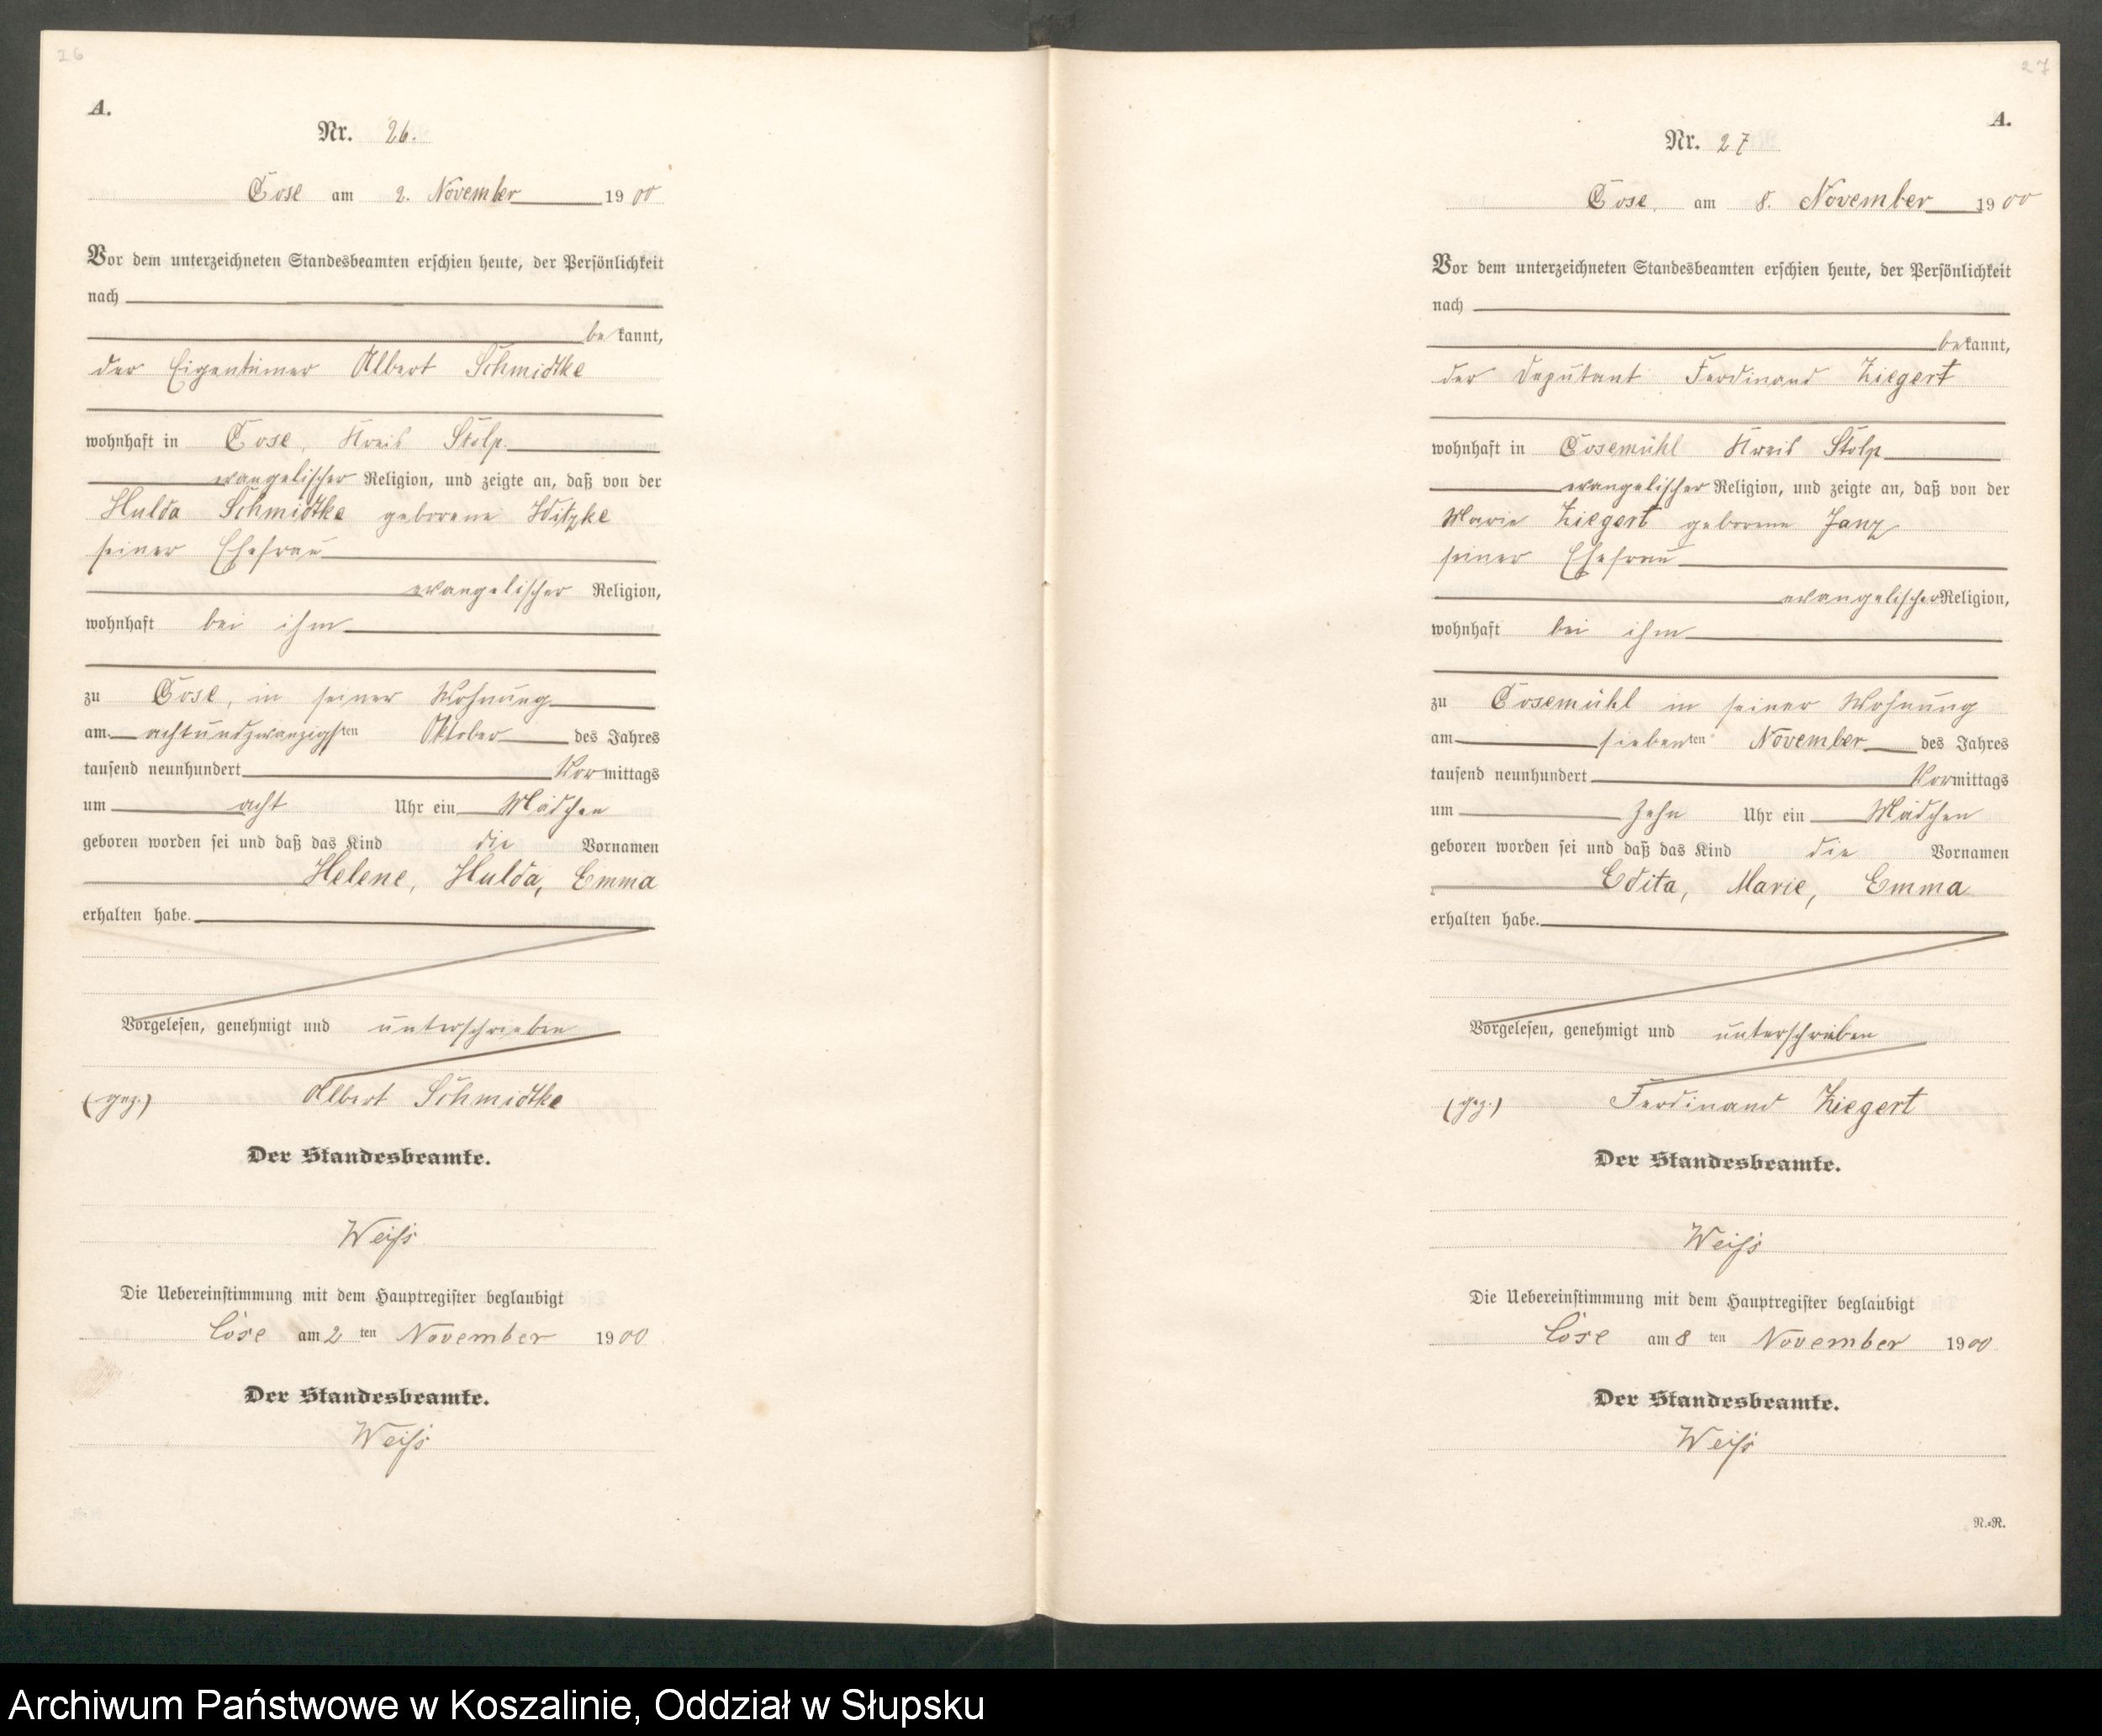 26
A.
Nr. 26.
Cose am 2. November 1900
Vor dem unterzeichneten Standesbeamten erschien heute, der Persönlichkeit
nach
bekannt,
der Eigentümer Albert Schmidtke
wohnhaft in Cose, Kreis Stolp
evangelischer Religion, und zeigte an, daß von der
Hulda Schmidtke geborene
seiner Ehefrau
evangelischer Religion,
wohnhaft bei ihm
zu Cose, in seiner Wohnung
am achtundzwanzigsten Oktober des Jahres
tausend neunhundert Vormittags
um acht Uhr ein Mädchen
geboren worden sei und daß das Kind die Vornamen
Helene, Hulda, Emma
erhalten habe.
Vorgelesen, genehmigt und unterschrieben
(gez.) Albert Schmidtke
Der Standesbeamte.
Weiß
Die Uebereinstimmung mit dem Hauptregister beglaubigt
Cose am 2 ten November 1900
Der Standesbeamte.
Weiß
27
A.
Nr. 27
Cose, am 8. November 1900
Vor dem unterzeichneten Standesbeamten erschien heute, der Persönlichkeit
nach
bekannt,
der Deputant Ferdinand Ziegert
wohnhaft in Cosemühl Kreis Stolp
evangelischer Religion, und zeigte an, daß von der
Marie Ziegert geborene Janz
seiner Ehefrau
evangelischer Religion,
wohnhaft bei ihm
zu Cosemühl in seiner Wohnung
am siebenten November des Jahres
tausend neunhundert Vormittags
um zehn Uhr ein Mädchen
geboren worden sei und daß das Kind die Vornamen
Edita, Marie, Emma
erhalten habe.
Vorgelesen, genehmigt und unterschrieben
(gez.) Ferdinand Ziegert
Der Standesbeamte.
Weiß
Die Uebereinstimmung mit dem Hauptregister beglaubigt
Cose am 8 ten November 1900
Der Standesbeamte.
Weiß
N.=R.
Archiwum Państwowe w Koszalinie, Oddział w Słupsku